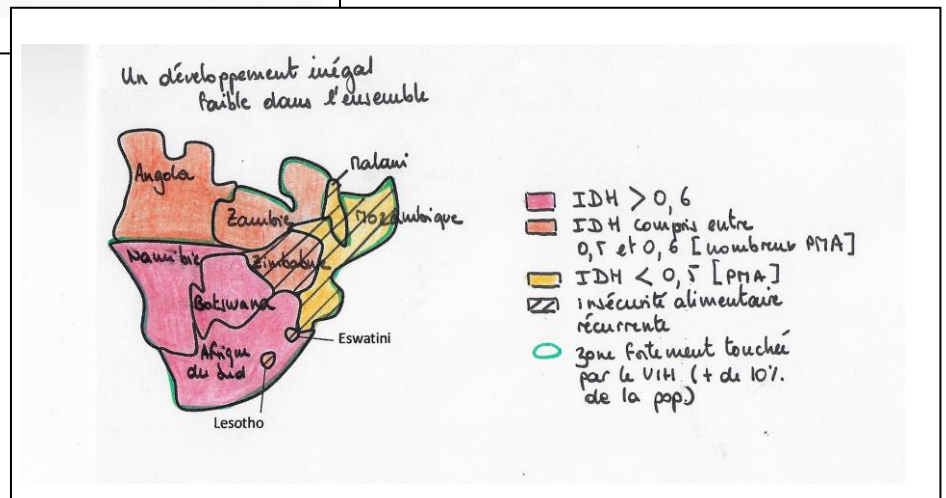 Un développement inégal
faible dans l'ensemble
Angola
Malawi
Zambie
Mozambique
Namibie
Zimbabwe
Botswana
Eswatini
Afrique
du Sud
Lesotho
IDH > 0,6
IDH compris entre
0,5 et 0,6 [nombreux PMA]
IDH < 0,5 [PMA]
insécurité alimentaire
récurrente
zone fortement touchée
par le VIH (+ de 10%
de la pop.)